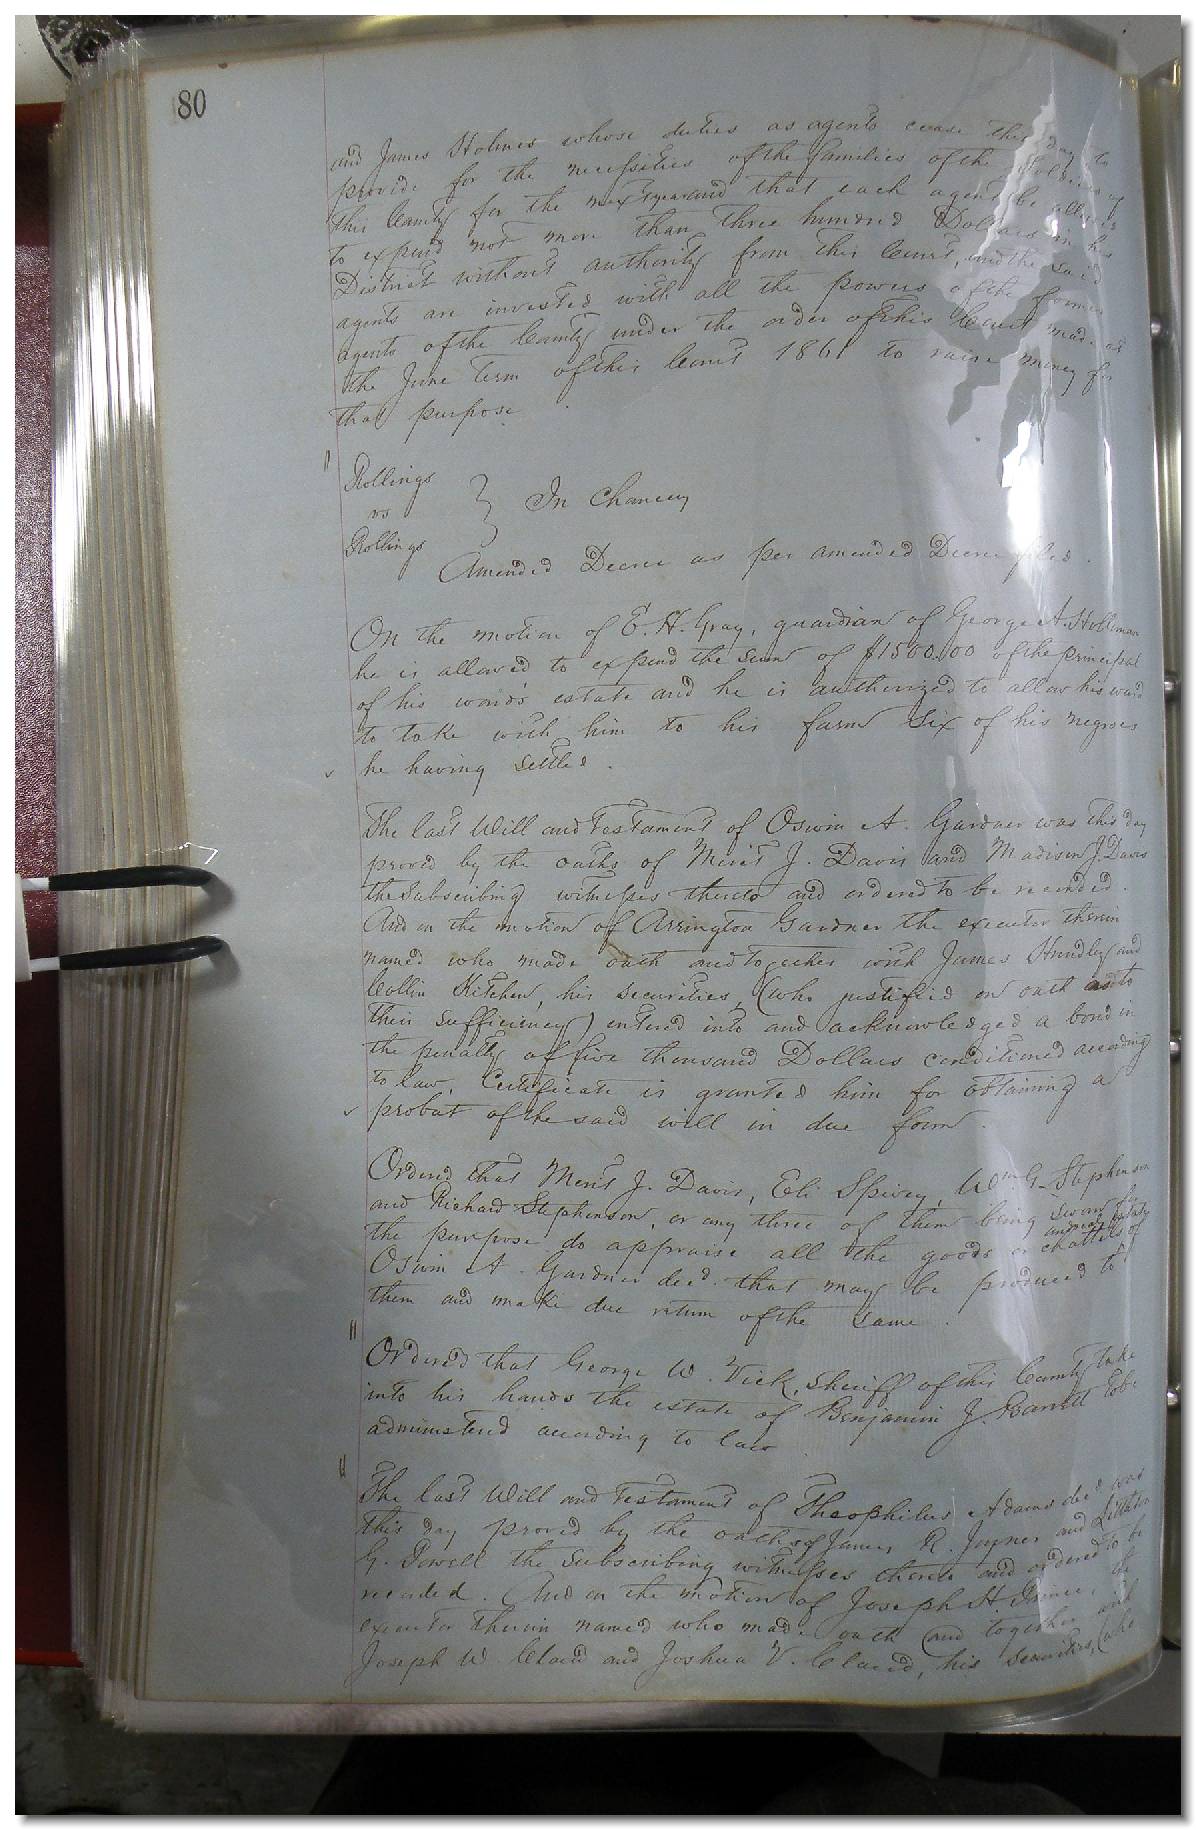 80
and James Holmes whose duties as agents cease this day to
provide for the necessities of the families of the soldiers of
this County for the next year and that each agent be allowed
to expend not more than three hundred Dollars in his
District without authority from this Court, and the said
agents are invested with all the powers of the former
agents of the County under the order of this Court made at
the June term of this Court 1861 to raise money for
that purpose.
Rollings
vs } In Chancery
Rollings
Amended Decree as per amended Decree filed.
On the motion of E. H. Gray, guardian of George A. Holliman
he is allowed to expend the sum of $1500.00 of the principal
of his wards estate and he is authorized to allow his ward
to take with him to his farm six of his negroes
he having settled.
The last Will and Testament of Oswin A. Gardner was this day
proved by the oaths of Merit J. Davis and Madison J. Davis
the Subscribing witnesses thereto and ordered to be recorded.
And on the motion of Arrington Gardner the executor therein
named who made oath and together with James Hundley and
Collin Kitchen, his securities, (who justified on oath as to
their sufficiency) entered into and acknowledged a bond in
the penalty of five thousand Dollars conditioned according
to law, Certificate is granted him for obtaining a
probat of the said will in due form.
Ordered that Merit J. Davis, Eli Spivey, Wm G. Stephenson
and Richard Stephenson, or any three of them being sworn for
the purpose do appraise all the goods or chattels of
Oswin A. Gardner decd. that may be produced to
them and make due return of the same.
Ordered that George W. Vick, Sheriff of this County take
into his hands the estate of Benjamin J. Barrett to be
administered according to law
The last Will and Testament of Theophilus Adams decd. was
this day proved by the oaths of James R. Joyner and
G. Powell the Subscribing witnesses thereto and ordered to be
recorded. And on the motion of Joseph H. Prince, the
executor therein named who made oath and together with
Joseph W. Claud and Joshua V. Claud, his securities, (who